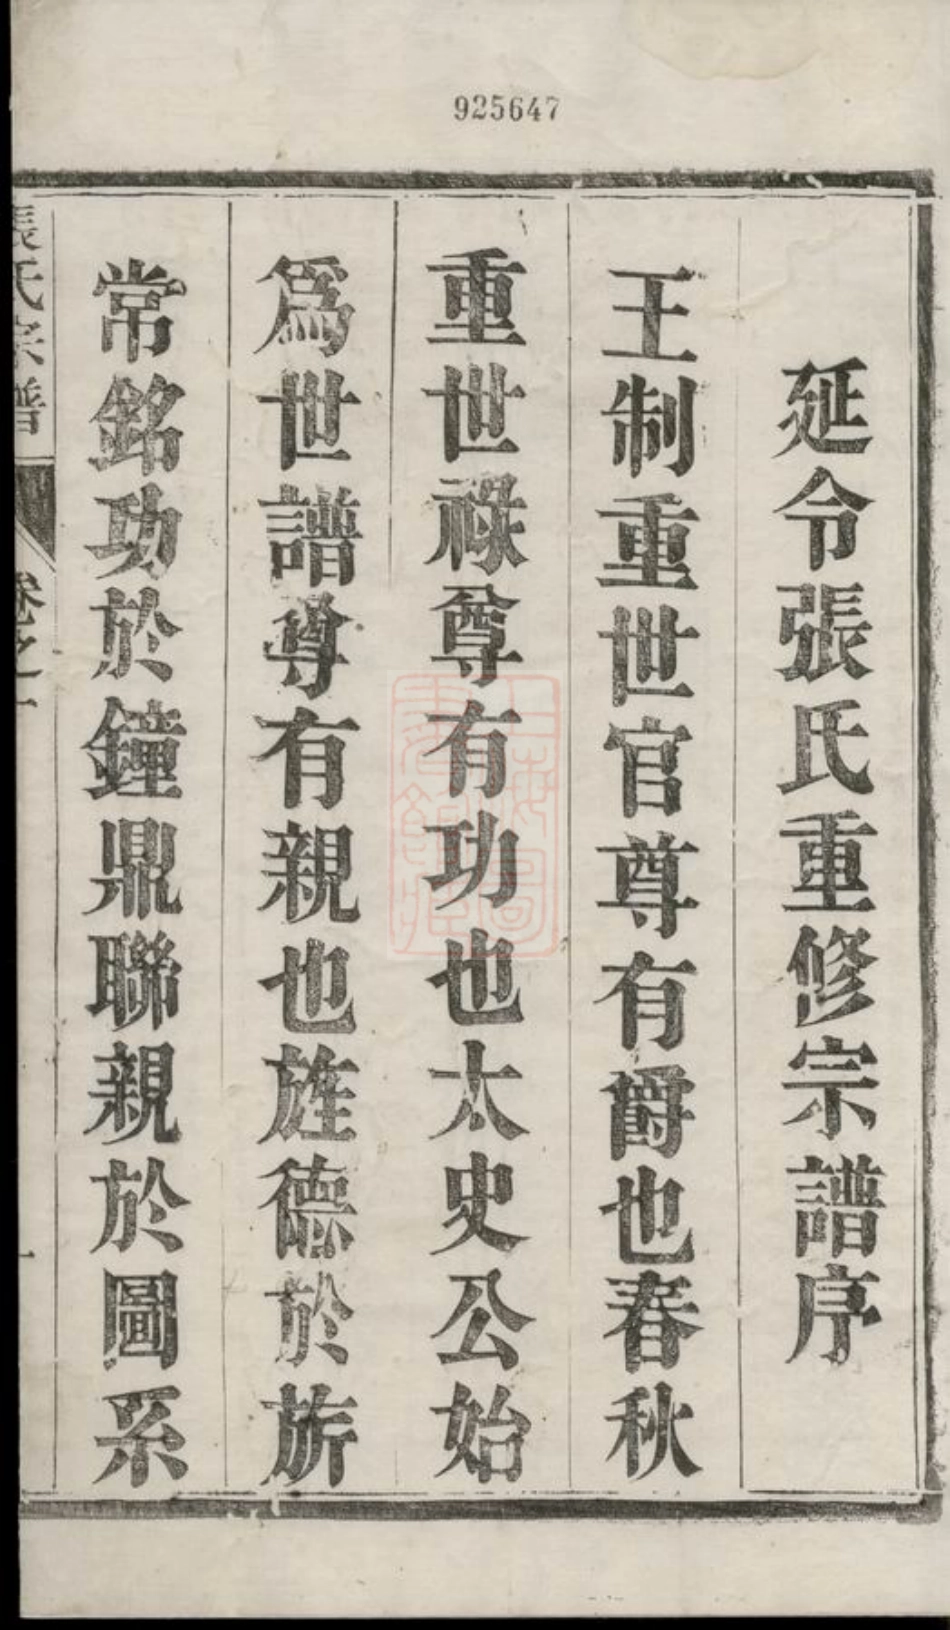 925647
延令張氏重修宗譜序
王制重世官尊有爵也春秋
重世祿尊有功也太史公始
爲世譜尊有親也旌德於旂
常銘功於鐘鼎聯親於圖系
張氏宗譜
卷之一
一
上海圖書館藏